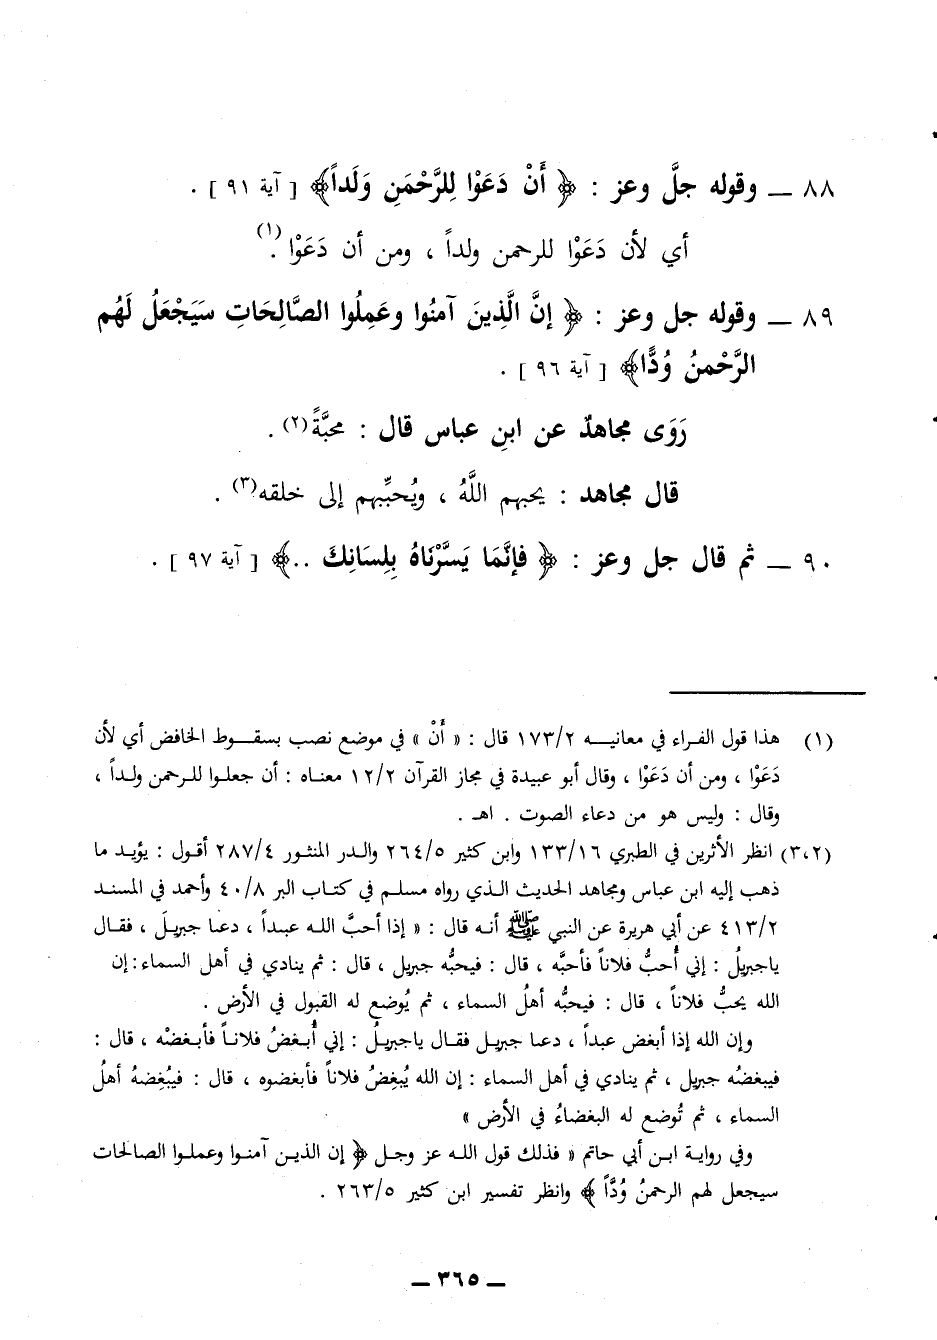 ٨٨ ــ وقوله جلَّ وعز : ﴿ أَنْ دَعَوْا لِلرَّحْمَنِ وَلَداً ﴾ [ آية ٩١ ] .
أي لأن دَعَوْا للرحمن ولداً ، ومن أن دَعَوْا .(١)
٨٩ ــ وقوله جل وعز : ﴿ إنَّ الَّذِينَ آمنُوا وعَمِلُوا الصَّالِحَاتِ سَيَجْعَلُ لَهُم
الرَّحْمنُ وُدًّا ﴾ [ آية ٩٦ ] .
رَوَى مجاهدٌ عن ابنِ عباس قال : محبَّةً(٢) .
قال مجاهد : يحبهم اللَّهُ ، ويُحبِّبهم إلى خلقه(٣) .
٩٠ ــ ثم قال جل وعز : ﴿ فإنَّمَا يَسَّرْنَاهُ بِلِسَانِكَ .. ﴾ [ آية ٩٧ ] .
(١) هذا قول الفراء في معانيه ١٧٣/٢ قال : « أَنْ » في موضع نصب بسقوط الخافض أي لأن
دَعَوْا ، ومن أن دَعَوْا ، وقال أبو عبيدة في مجاز القرآن ١٢/٢ معناه : أن جعلوا للرحمن ولداً ،
وقال : وليس هو من دعاء الصوت . اهـ .
(٣،٢) انظر الأثرين في الطبري ١٣٣/١٦ وابن كثير ٢٦٤/٥ والدر المنثور ٢٨٧/٤ أقول : يؤيد ما
ذهب إليه ابن عباس ومجاهد الحديث الذي رواه مسلم في كتاب البر ٤٠/٨ وأحمد في المسند
٤١٣/٢ عن أبي هريرة عن النبي ﷺ أنه قال : « إذا أحبَّ الله عبداً ، دعا جبريلَ ، فقال
ياجبريلُ : إني أُحبُّ فلاناً فأحبَّه ، قال : فيحبُّه جبريل ، قال : ثم ينادي في أهل السماء : إن
الله يحبُّ فلاناً ، قال : فيحبُّه أهلُ السماء ، ثم يُوضع له القبول في الأرض .
وإن الله إذا أبغض عبداً ، دعا جبريل فقال ياجبريلُ : إني أُبغضُ فلاناً فأبغضْه ، قال :
فيبغضُه جبريل ، ثم ينادي في أهل السماء : إن الله يُبغضُ فلاناً فأبغضوه ، قال : فيُبغِضهُ أهلُ
السماء ، ثم تُوضع له البغضاءُ في الأرض »
وفي رواية ابن أبي حاتم « فذلك قول الله عز وجل ﴿ إن الذين آمنوا وعملوا الصالحات
سيجعل لهم الرحمنُ وُدًّا ﴾ وانظر تفسير ابن كثير ٢٦٣/٥ .
ــ ٣٦٥ ــ